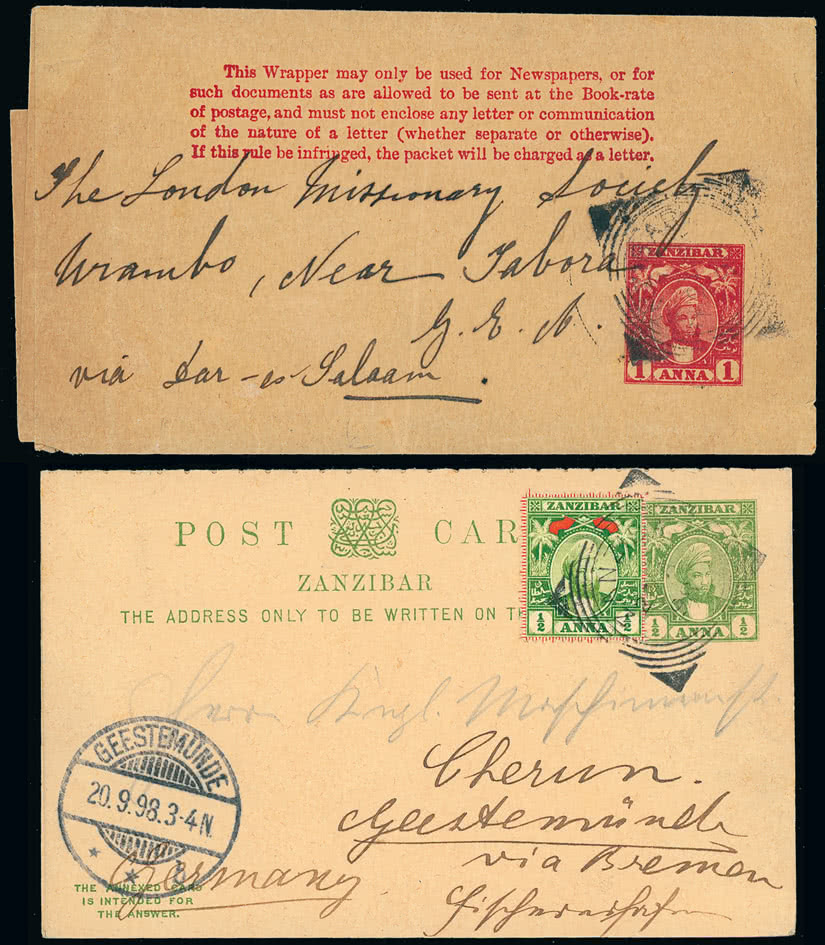 This Wrapper may only be used for Newspapers, or for
such documents as are allowed to be sent at the Book-rate
of postage, and must not enclose any letter or communication
of the nature of a letter (whether separate or otherwise).
If this rule be infringed, the packet will be charged as a letter.
The London Missionary Society
Urambo, Near Tabora
G. E. A.
via Dar-es-Salaam.
ZANZIBAR
1 ANNA 1
POST CAR
ZANZIBAR
THE ADDRESS ONLY TO BE WRITTEN ON TH
ZANZIBAR
½ ANNA ½
ZANZIBAR
½ ANNA ½
Herrn Kngl. Maschinenbst.
Cherun.
Geestemünde
via Bremen
Fischereihafen
Germany.
GEESTEMÜNDE
20.9.98.3-4N.
* *
THE ANNEXED CARD
IS INTENDED FOR
THE ANSWER.